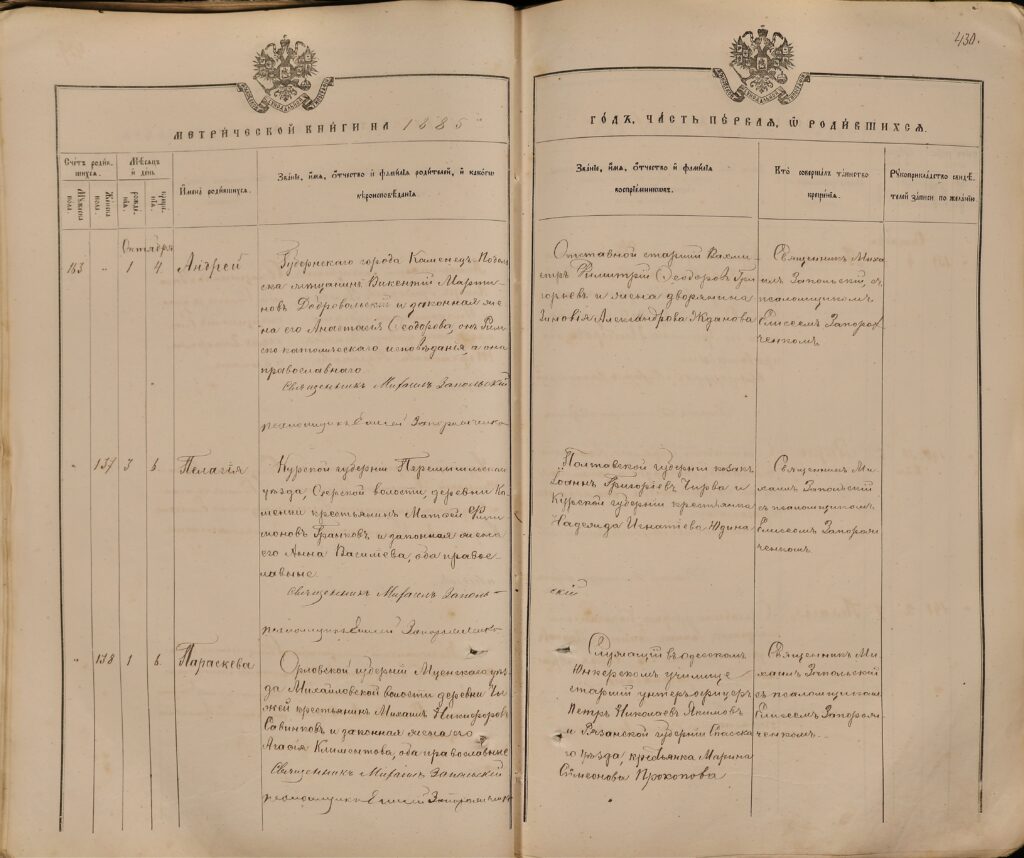 430.
МЕТРИЧЕСКОЙ КНИГИ НА 1885
ГОДЪ, ЧАСТЬ ПЕРВАЯ, Ѡ РОДИВШИХСЯ.
Счетъ родив-
шихся.
Мужеска
пола.
Женска
пола.
Мѣсяцъ
и день
рожде-
нія.
креще-
нія.
Имена родившихся.
Званіе, имя, отчество и фамилія родителей, и какого
вѣроисповѣданія
Званіе, имя, отчество и фамилія
воспріемниковъ.
Кто совершалъ таинство
крещенія.
Рукоприкладство свидѣ-
телей записи по желанію.
Октября
163 " 1 4 Андрей
Губернскаго города Каменецъ-Подоль
ска мѣщанинъ Викентій Марти-
новъ Добровольскій и законная же-
на его Анастасія Ѳеодорова, онъ Рим-
ско католическаго исповѣданія, а она
православнаго.
Священникъ Михаилъ Запольскій
псаломщикъ Елисей Запорожченко
Отставной старшій Вахми-
стръ Димитрій Ѳеодоровъ Гри
горьевъ и жена дворянина
Зиновія Александрова Жданова
Священникъ Миха
илъ Запольскій, съ
псаломщикомъ
Елисеемъ Запорож
ченкомъ
" 137 3 6 Пелагія
Курской губерніи
уѣзда, волости, деревни Ка
менки крестьянинъ Матѳей
и законная жена
его Анна Василіева, оба право-
славные
Священникъ Михаилъ Заполь-
скій
псаломщикъ Елисей Запорожченко
Полтавской губерніи козакъ
Іоаннъ Григоріевъ Чирва и
Курской губерніи крестьянка
Надежда Игнатіева Юдина
Священникъ Ми-
хаилъ Запольскій
съ псаломщикомъ
Елисеемъ Запорож
ченкомъ
" 138 1 6. Параскева
Орловской губерніи Мценскаго уѣ-
зда Михайловской волости деревни
крестьянинъ Михаилъ Никифоровъ
Савинковъ и законная жена его
Агафія Климентова, оба православные
Священникъ Михаилъ Запольскій
псаломщикъ Елисей Запорожченко
Служащій въ одесскомъ
Юнкерскомъ училище
старшій унтеръ-офицеръ
Петръ Николаевъ Якимовъ
и Рязанской губерніи Спасска
го уѣзда, крестьянка Марина
Симеонова Прокопова
Священникъ Ми-
хаилъ Запольскій
съ псаломщикомъ
Елисеемъ Запорож
ченкомъ.